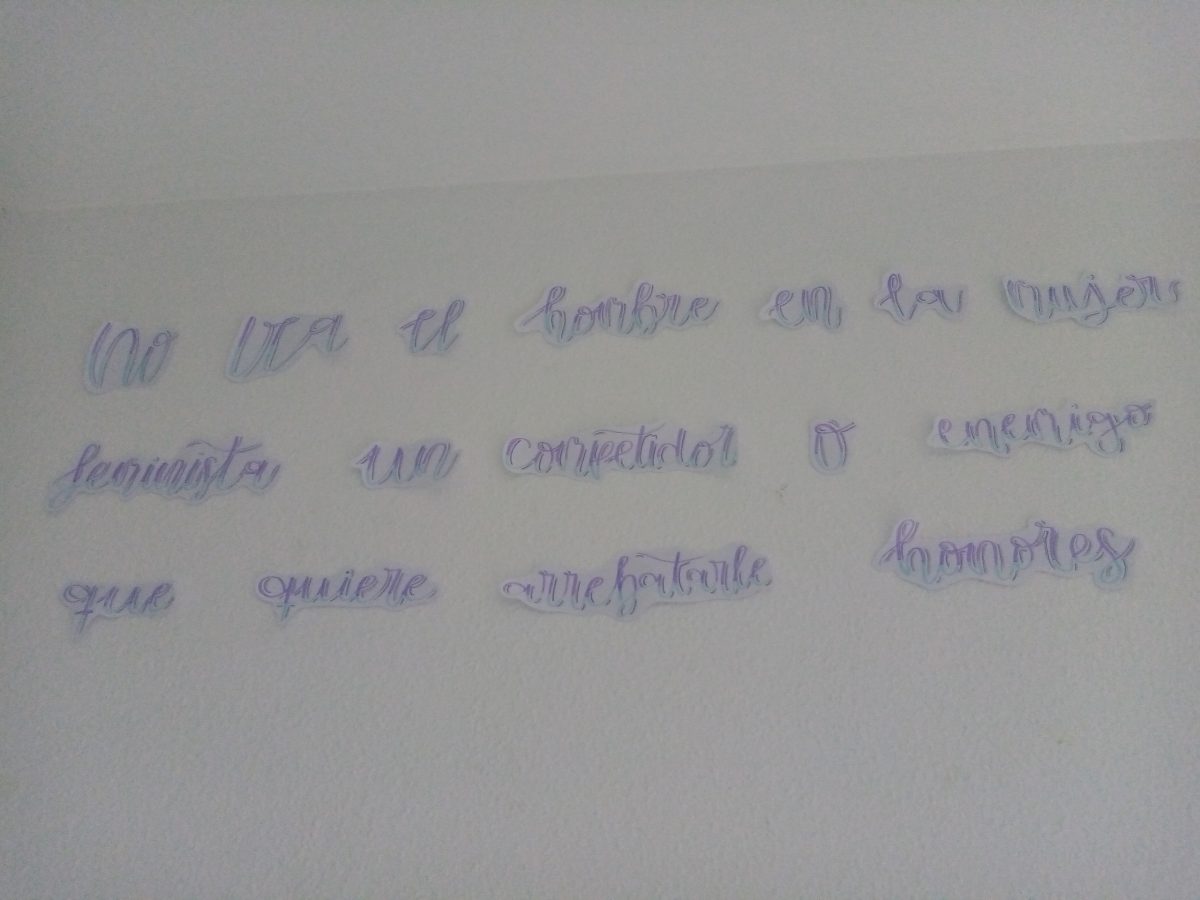 No vea el hombre en la mujer
feminista un competidor o enemigo
que quiere arrebatarle honores